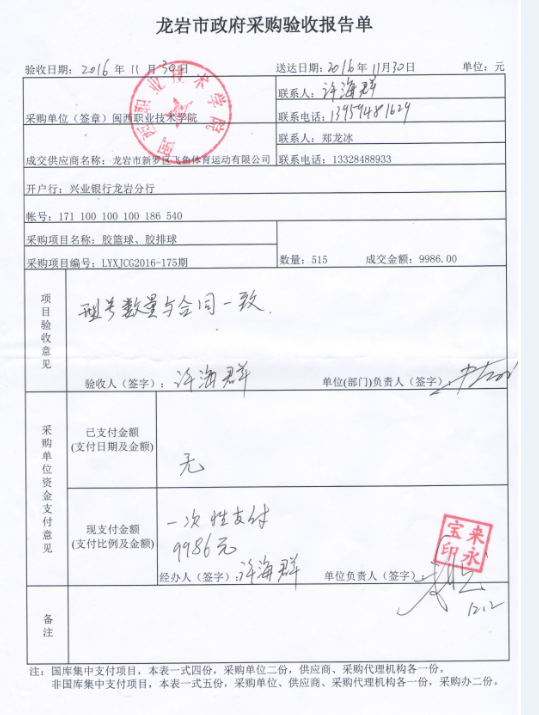 龙岩市政府采购验收报告单
验收日期：2016 年 11 月 30 日 送达日期：2016 年 11 月 30 日 单位：元
采购单位（签章）闽西职业技术学院
联系人：许海群
联系电话：13959481629
闽西职业技术学院
成交供应商名称：龙岩市新罗区飞鱼体育运动有限公司
联系人：郑龙冰
联系电话：13328488933
开户行：兴业银行龙岩分行
帐号：171 100 100 100 186 540
采购项目名称：胶篮球、胶排球
采购项目编号：LYXJCG2016-175期
数量：515 成交金额：9986.00
项目验收意见
型号数量与合同一致.
验收人（签字）：许海群 单位(部门)负责人（签字）：
采购单位资金支付意见
已支付金额
(支付日期及金额)
无
现支付金额
(支付比例及金额)
一次性支付
9986元
经办人（签字）：许海群 单位负责人（签字）：
来永宝印
12.2
备注
注：国库集中支付项目，本表一式四份，采购单位二份，供应商、采购代理机构各一份。
非国库集中支付项目，本表一式五份，采购单位、供应商、采购代理机构各一份，采购办二份。